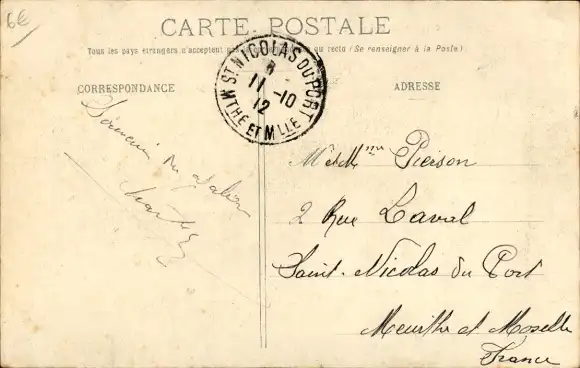 6€
CARTE POSTALE
Tous les pays étrangers n'acceptent pas au recto (Se renseigner à la Poste)
CORRESPONDANCE
ADRESSE
ST NICOLAS DU PORT
8
11 -10
12
MTHE ET MLLE
Mr et Mme Pierson
2 Rue Laval
Saint-Nicolas du Port
Meurthe et Moselle
France